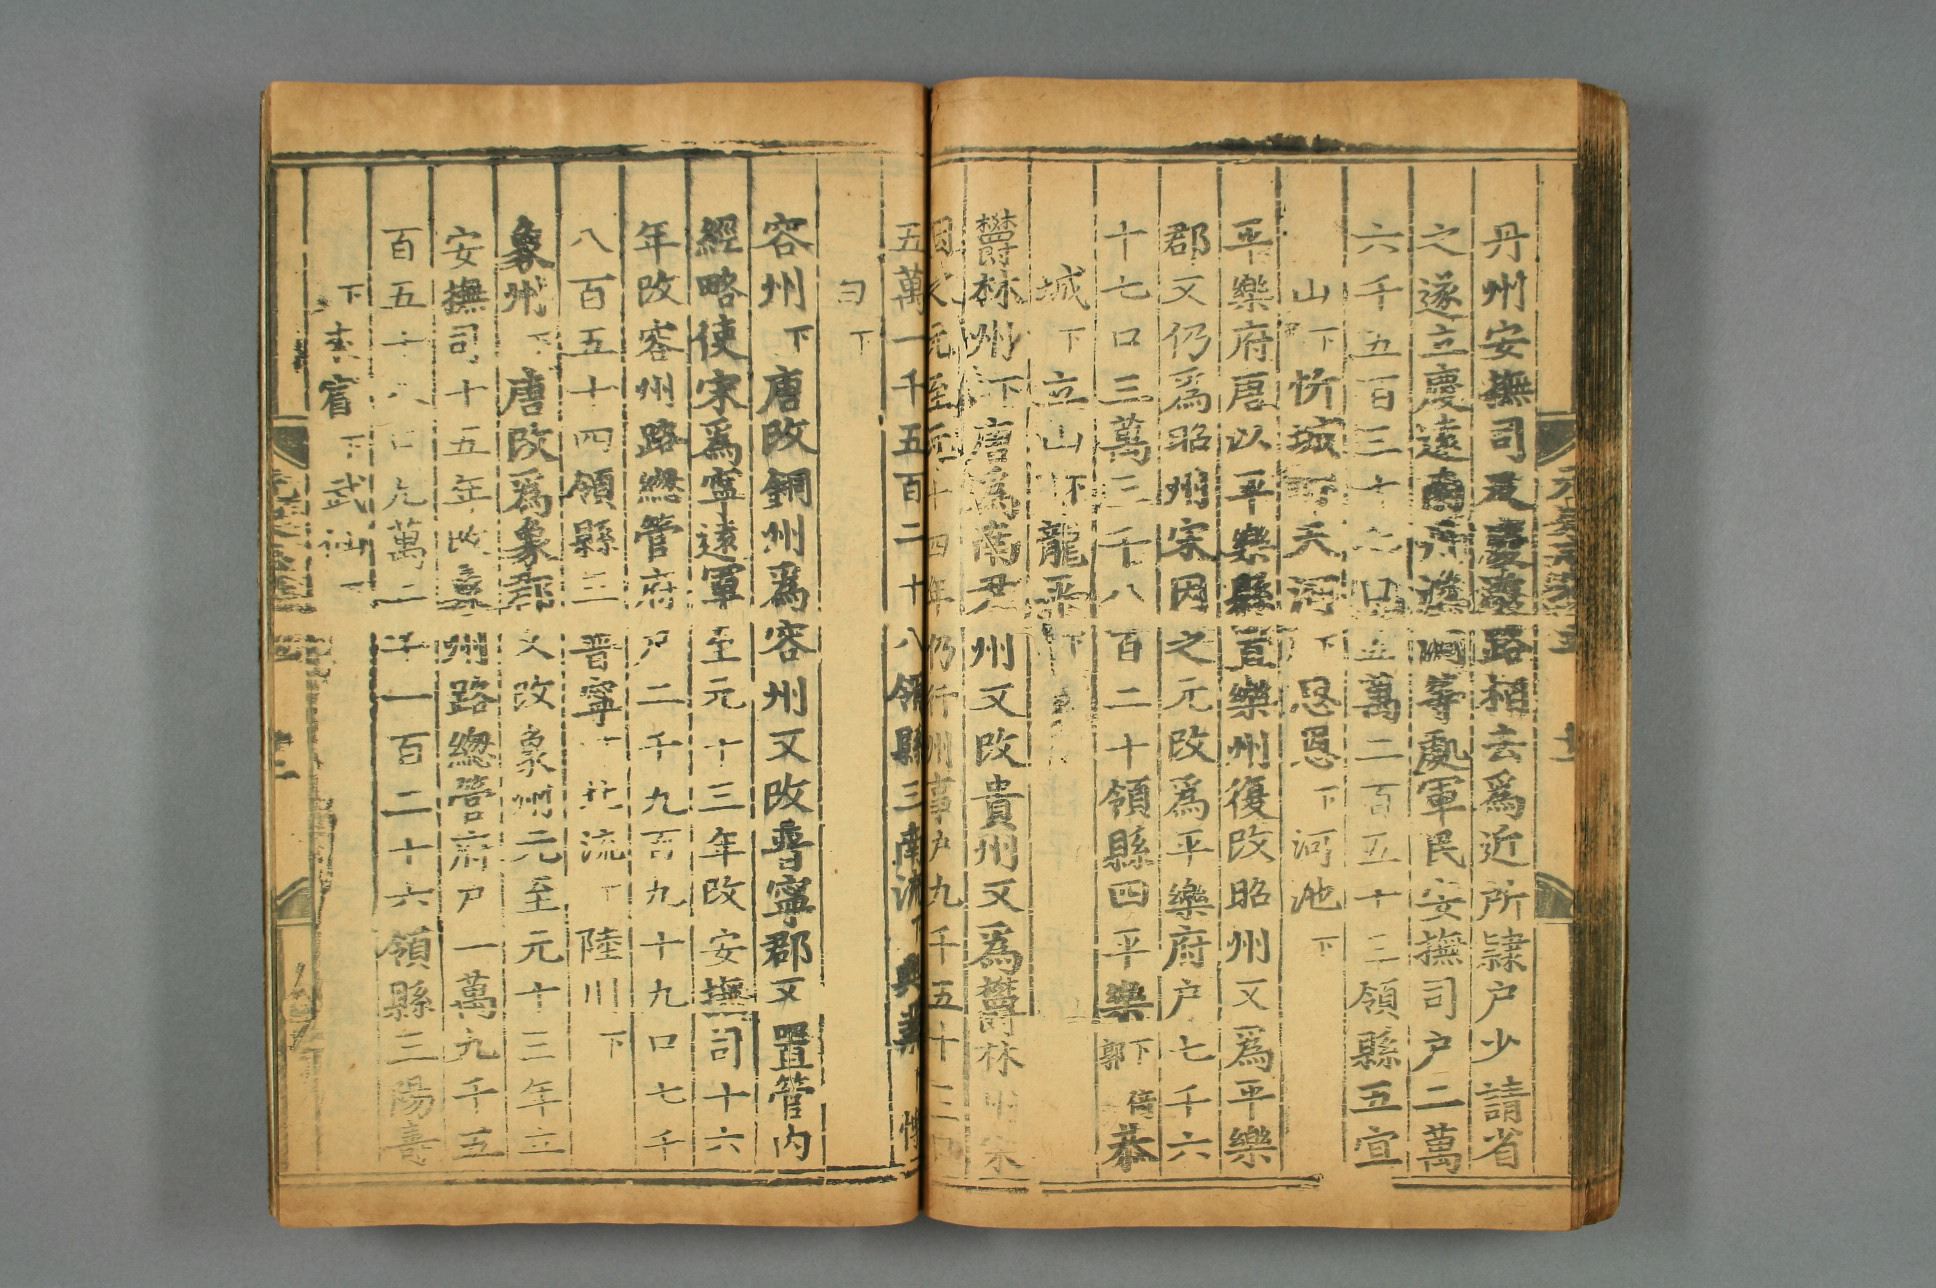 丹州安撫司及慶遠路相去爲近所隸户少請省
之遂立慶遠南丹溪洞等處軍民安撫司户二萬
六千五百三十七口五萬二百五十三領縣五宜
山下忻城下天河下思恩下河池下
平樂府唐以平樂縣置樂州復改昭州又爲平樂
郡又仍爲昭州宋因之元改爲平樂府户七千六
十七口三萬三千八百二十領縣四平樂下倚郭恭
城下立山下龍平下
鬱林州下唐爲南尹州又改貴州又爲鬱林州宋
因之元至元十四年仍行州事户九千五十三口
五萬一千五百二十八領縣三南流下興業下博
白下
容州下唐改銅州爲容州又改普寧郡又置管内
經略使宋爲寧遠軍至元十三年改安撫司十六
年改容州路緫管府户二千九百九十九口七千
八百五十四領縣三普寧下北流下陸川下
象州下唐改爲象郡又改象州元至元十三年立
安撫司十五年改象州路緫管府户一萬九千五
百五十八口九萬二千一百二十六領縣三陽壽
下來賓下武仙下